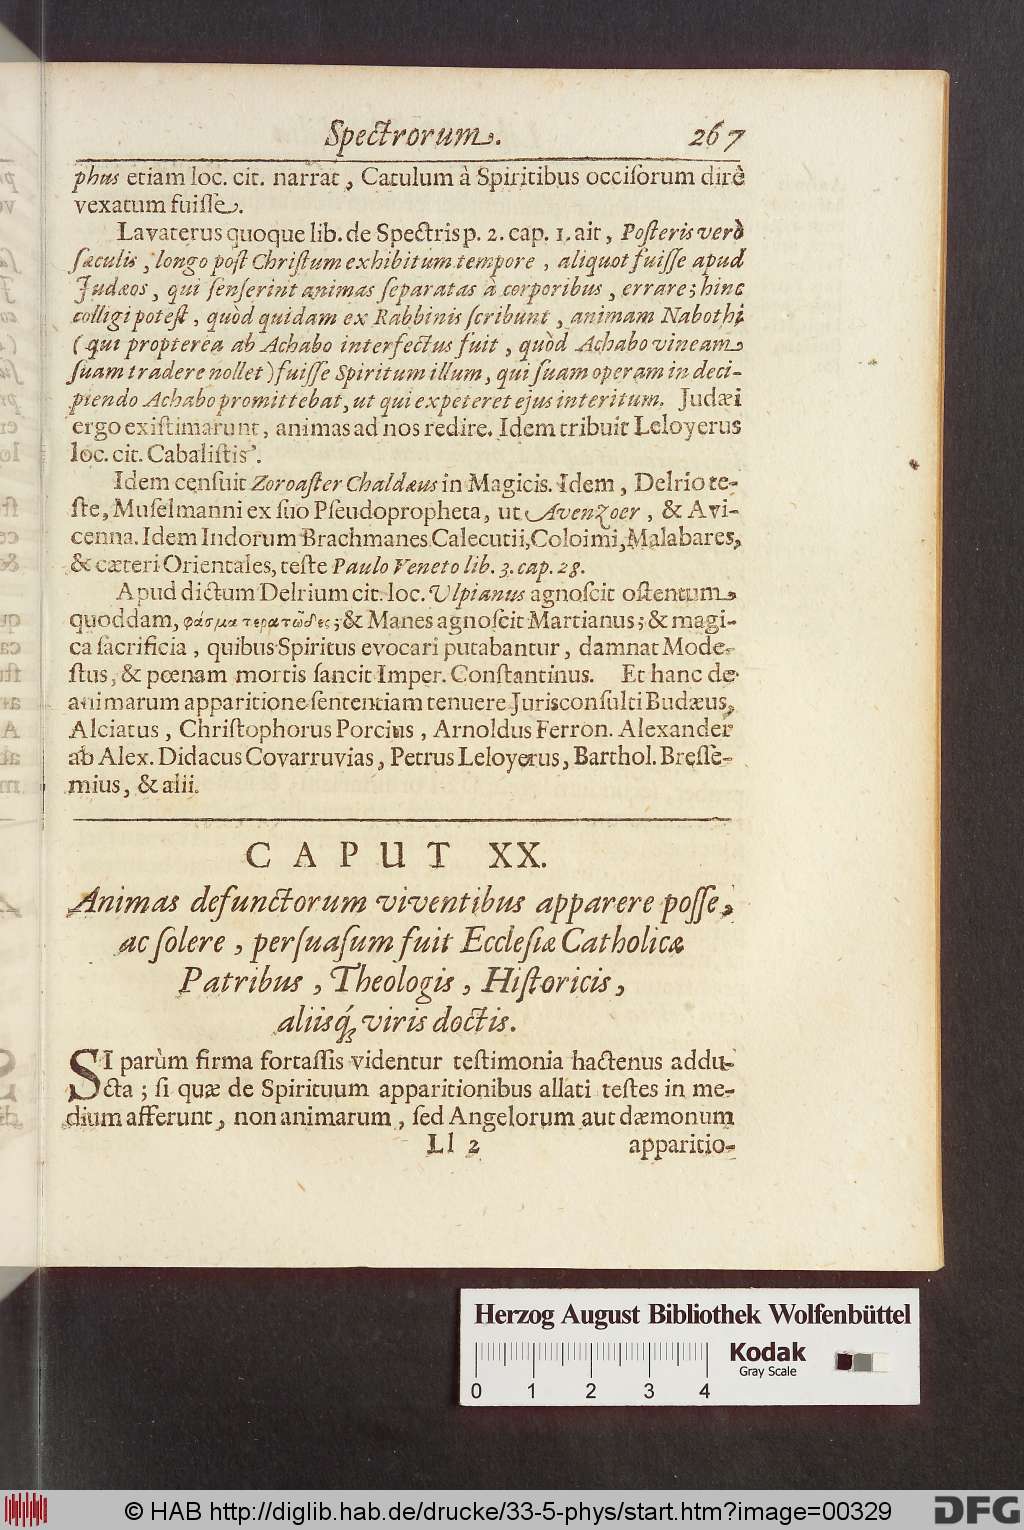 Spectrorum. 267
phus etiam loc. cit. narrat, Catulum à Spiritibus occiſorum dirè
vexatum fuiſſe.
Lavaterus quoque lib. de Spectris p. 2. cap. 1. ait, Poſteris verò
ſæculis, longo poſt Chriſtum exhibitum tempore, aliquot fuiſſe apud
Judæos, qui ſenſerint animas ſeparatas à corporibus, errare; hinc
colligi poteſt, quòd quidam ex Rabbinis ſcribunt, animam Nabothi
(qui propterea ab Achabo interfectus fuit, quòd Achabo vineam
ſuam tradere nollet) fuiſſe Spiritum illum, qui ſuam operam in deci-
piendo Achabo promittebat, ut qui expeteret ejus interitum. Judæi
ergo exiſtimarunt, animas ad nos redire. Idem tribuit Leloyerus
loc. cit. Cabaliſtis.
Idem cenſuit Zoroaſter Chaldæus in Magicis. Idem, Delrio te-
ſte, Muſelmanni ex ſuo Pſeudopropheta, ut Avenzoer, & Avi-
cenna. Idem Indorum Brachmanes Calecutii, Coloimi, Malabares,
& cæteri Orientales, teſte Paulo Veneto lib. 3. cap. 28.
Apud dictum Delrium cit. loc. Ulpianus agnoſcit oſtentum
quoddam, φάσμα τερατῶδες; & Manes agnoſcit Martianus; & magi-
ca ſacrificia, quibus Spiritus evocari putabantur, damnat Mode-
ſtus, & pœnam mortis ſancit Imper. Conſtantinus. Et hanc de
animarum apparitione ſententiam tenuere Jurisconſulti Budæus,
Alciatus, Chriſtophorus Porcius, Arnoldus Ferron. Alexander
ab Alex. Didacus Covarruvias, Petrus Leloyerus, Barthol. Breſſe-
mius, & alii.
CAPUT XX.
Animas defunctorum viventibus apparere poſſe,
ac ſolere, perſuaſum fuit Eccleſiæ Catholicæ
Patribus, Theologis, Hiſtoricis,
aliisq́ꝫ viris doctis.
SI parùm firma fortaſſis videntur teſtimonia hactenus addu-
cta; ſi quæ de Spirituum apparitionibus allati teſtes in me-
dium afferunt, non animarum, ſed Angelorum aut dæmonum
Ll 2 apparitio-
Herzog August Bibliothek Wolfenbüttel
Kodak
Gray Scale
0 1 2 3 4
© HAB http://diglib.hab.de/drucke/33-5-phys/start.htm?image=00329 DFG